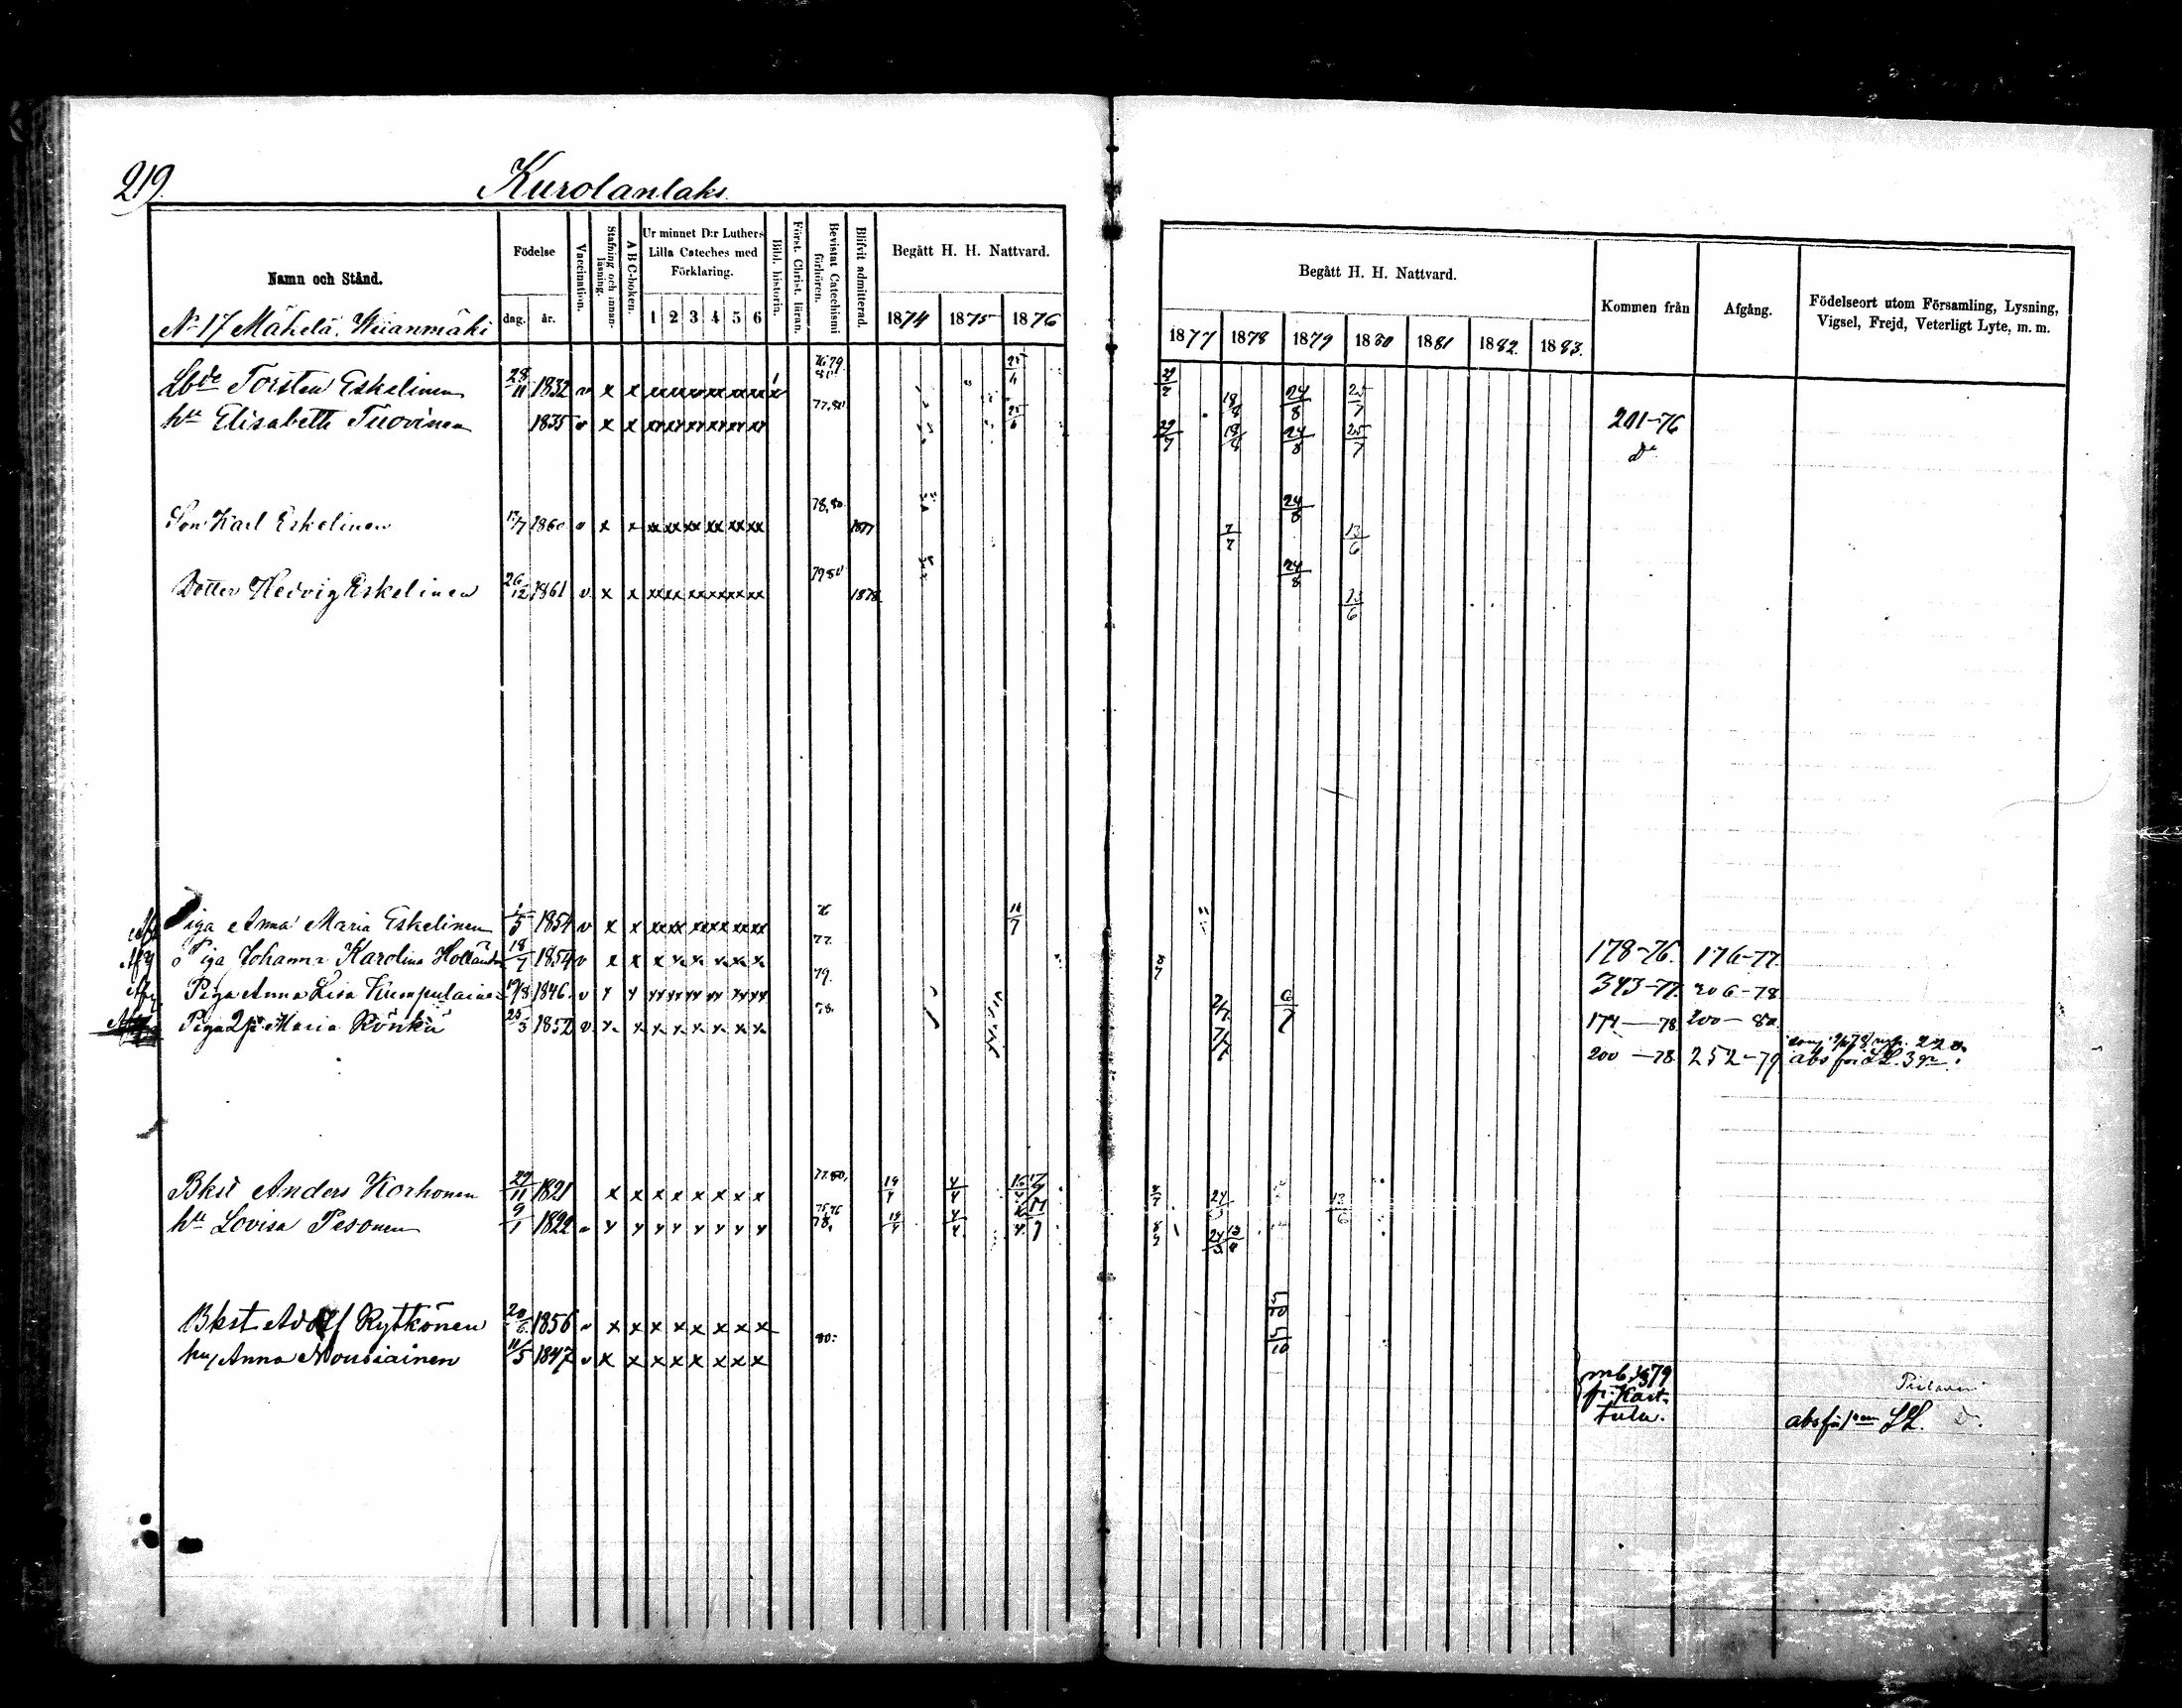 219.
Kurolanlaks.
Namn och Stånd.
Födelse
dag.
år.
Vaccination.
Stafning och innan-läsning.
A B C-boken.
Ur minnet D:r Luthers
Lilla Cateches med
Förklaring.
1 2 3 4 5 6
Bibl. historia.
Först. Christ. läran.
Bevistat Catechismi förhören.
Blifvit admitterad.
Begått H. H. Nattvard.
1874 1875 1876
Begått H. H. Nattvard.
1877 1878 1879 1880 1881 1882. 1883.
Kommen från
Afgång.
Födelseort utom Församling, Lysning,
Vigsel, Frejd, Veterligt Lyte, m. m.
No 17 Mähelä. Wiianmäki
Lbde Torsten Eskelinen 28/11 1832 v x x 25/6 29/7 18/8 24/8 25/7 201-76
hu Elisabeth Tuovinen 1835 v x x 77,80 25/6 29/7 18/8 24/8 25/7 do
Son Karl Eskelinen 17/7 1860 v x x 78,80 1877 7/7 24/8 13/6
Dotter Hedvig Eskelinen 26/12 1861 v x x 79 80 1878 24/8 13/6
Piga Anna Maria Eskelinen 1/5 1854 v x x 76 16/7 178-76. 176-77.
Piga Johanna Karolina Holländer 18/7 1854 v x x 77. 8/7 343-77. 206-78
Piga Anna Lisa Kumpulainen 19/8 1846 v 79. 2/7 6/7 174-78 200-80
Piga Maria Rönkä 25/3 1852 v 78. 7/7 200-78 252-79 abs för LL. 3 gn.
Bkst Anders Korhonen 27/11 1821 x x x x x x x x 77.80, 19/4 4/4 13/6
hu Lovisa Pesonen 9/1 1822 75,76 78, 19/4 4/4
Bkst Adolf Rytkönen 20/6 1856 v x x x x x x x x 5/10
hu, Anna Nousiainen 11/5 1847 v x x x x x x x x 80. 5/10
mb, 1879
fr. Kart-
tula.
abs för LL. D.